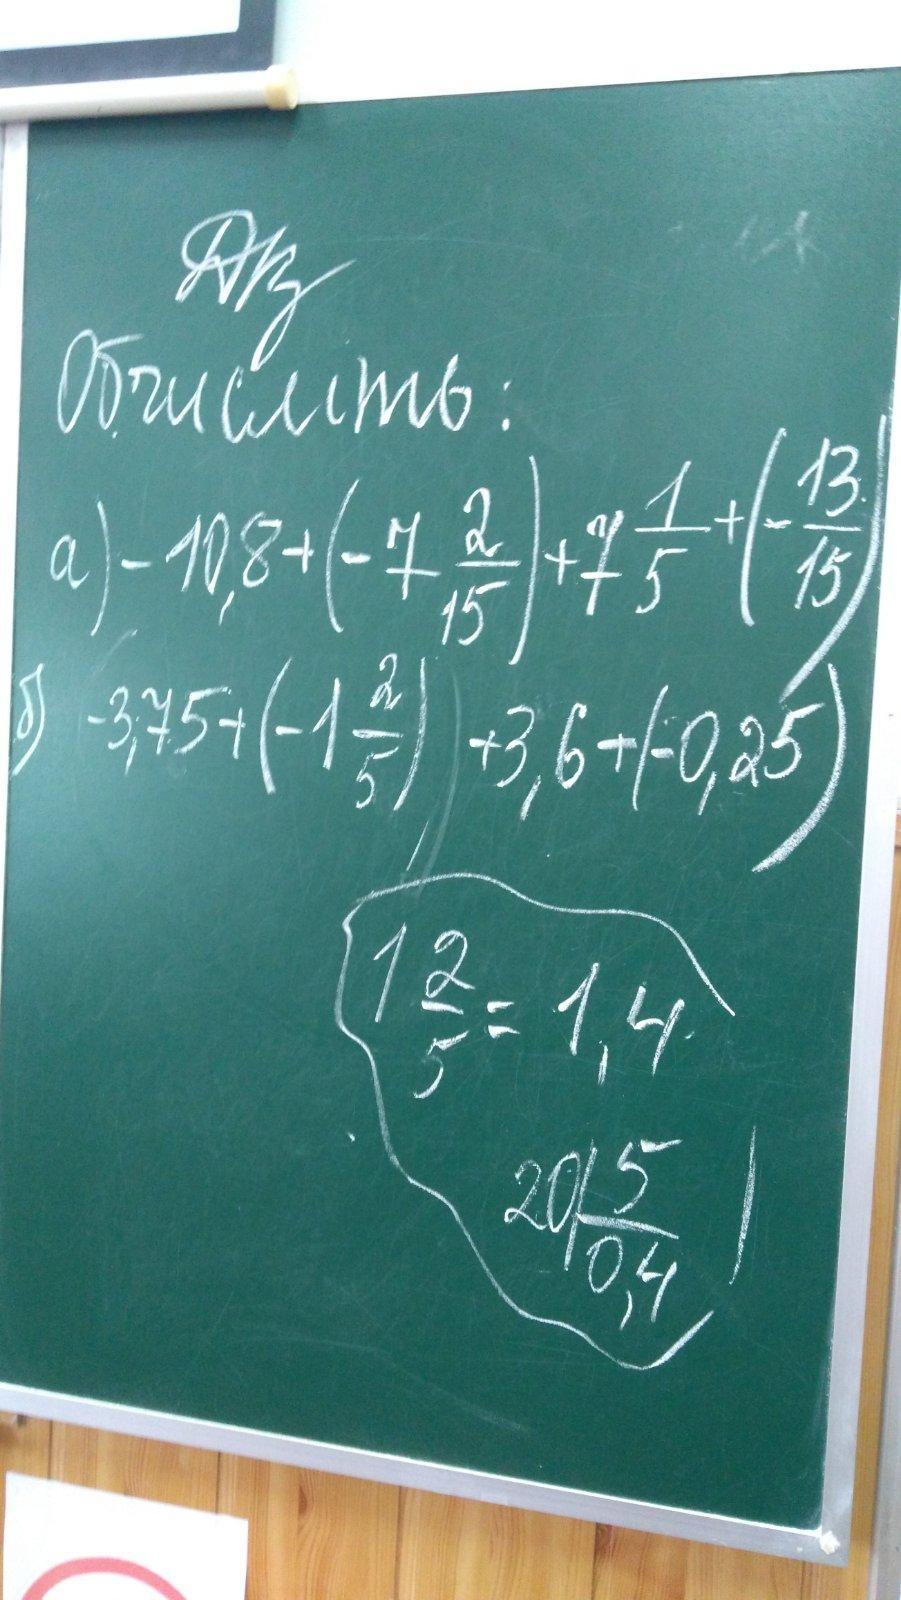 ДКз
Обчислить:
а) -10,8+(-7 2/15)+7 1/5+(-13/15)
б) -3,75+(-1 2/5)+3,6+(-0,25)
1 2/5 = 1,4
20|5
0,4